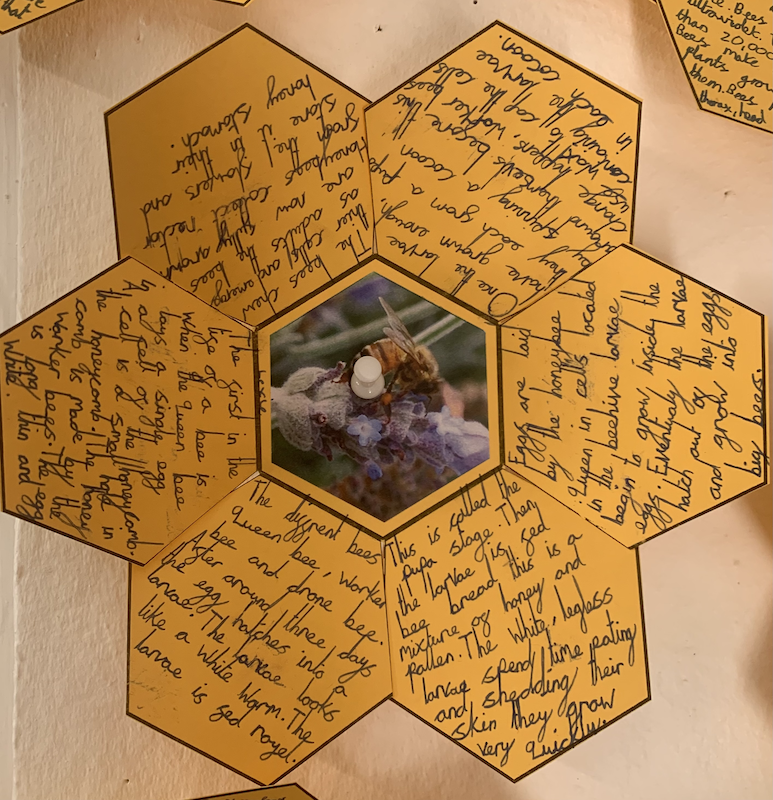 that
The bees chew
thier cells and emerge
as adults
are now fully grown
Honeybees collect nectar
from flowers and
store it in their
honey stomach.
One the larvae
have grown enough,
they each form a pupa
by spinning a cocoon
around before this
change happens, worker bees
use wax to cap the cells
containing the larvae
in each cocoon.
Bees
ultraviolet.
than 20,000
Bees make
plants grow
them. Bees
thorax, head
The first in the
life of a bee is
when the Queen bee
lays a single egg
in a cell of the Honeycomb.
A cell is a small hole in
the honeycomb. The honey
comb is made by the
worker bees The egg
is long thin and
white.
Eggs are laid
by the honeybee
Queen in cells located
in the beehive larvae
begin to grow inside the
eggs. Eventualy the larvae
hatch out of the eggs
and grow into
big bees.
The diffrent bees
Queen bee, Worker
bee and drone bee
After around three days
the egg hatches into a
larvae. The larvae looks
like a white worm. The
larvae is fed royel.
This is called the
pupa stage. Then
the larvae is fed
bee bread this is a
mixture of honey and
pallen. The white, legless
larvae spend time eating
and shedding their
skin they grow
very quickly.